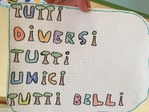 TUTTI
DIVERSI
TUTTI
UNICI
TUTTI BELLI